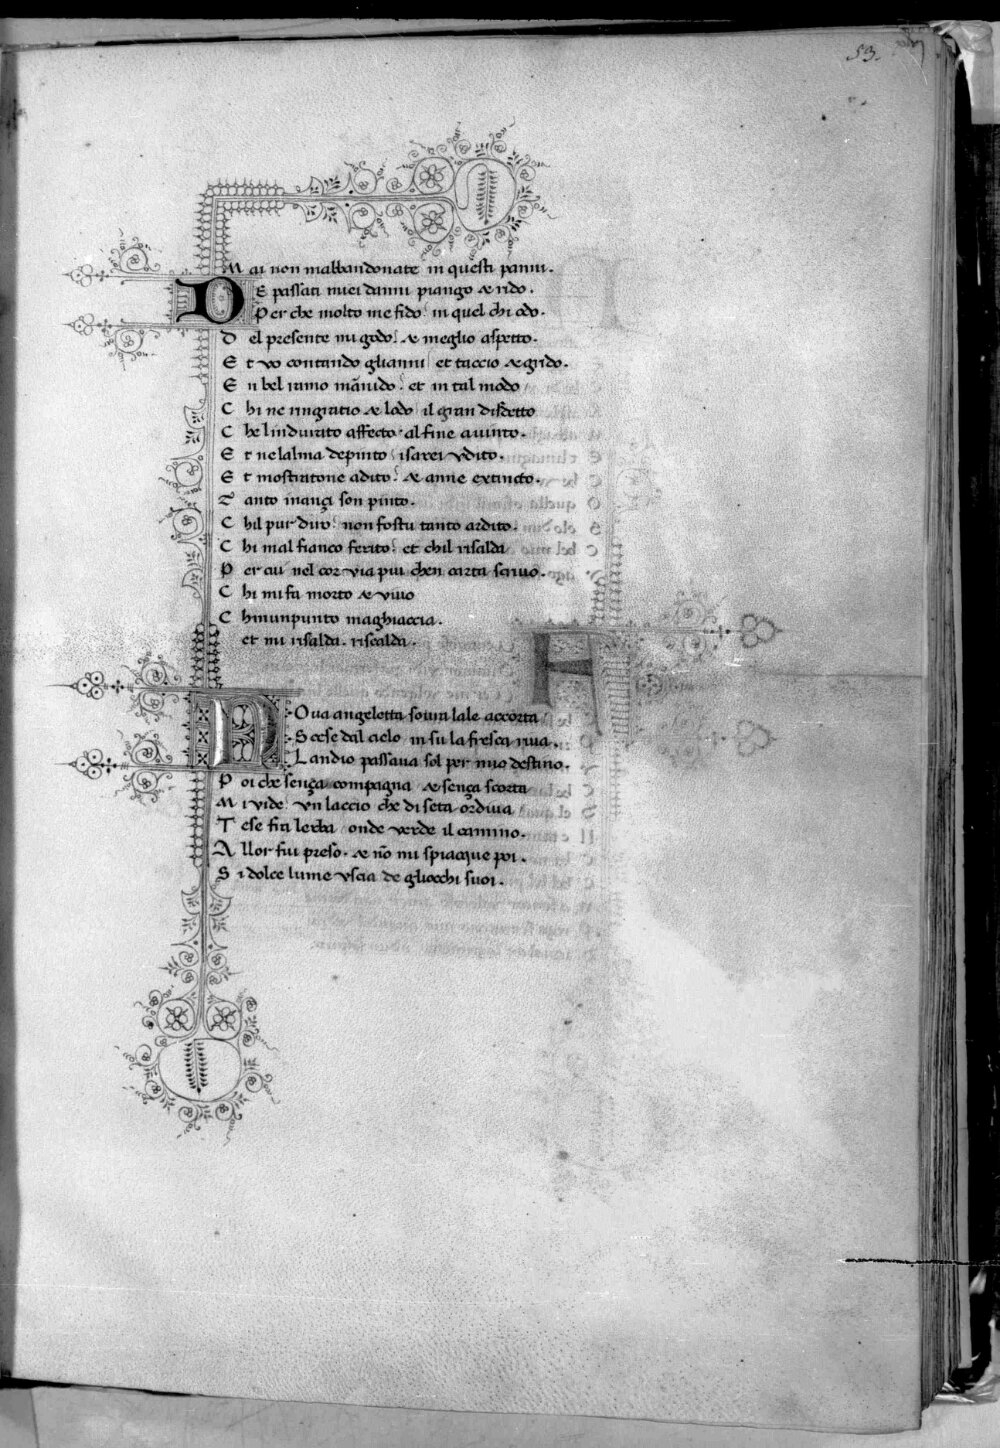 53.
M ai non mabbandonate in questi panni.
DE passati miei danni piango & rido.
Per che molto me fido: in quel chi odo.
D el presente mi godo: & meglio aspetto.
E t vo contando glianni: et taccio & grido.
E n bel ramo mãnido: et in tal modo
C hi ne ringratio & lodo il gran disdetto
C he lindurito affecto al fine a vinto.
E t ne lalma depinto: isarei vdito.
E t mostratone adito: & anne extincto.
T anto inançi son pinto.
C hil pur diro: non fostu tanto ardito.
C hi mal fianco ferito: et chil risalda
P er cui nel cor via piu chen carta scrivo.
C hi mi fa morto & vivo
C hinunpunto maghiaccia.
et mi risalda. riscalda.
NOva angeletta sovra lale accorta
Scese dal cielo in su la fresca riva.
Landio passava sol per mio destino.
P oi che sença compagna & sença scorta
M i vide: vn laccio che di seta ordiva
T ese fra lerba onde verde il camino.
A llor fui preso. & nõ mi spiacque poi.
S i dolce lume vscia de gliocchi suoi.